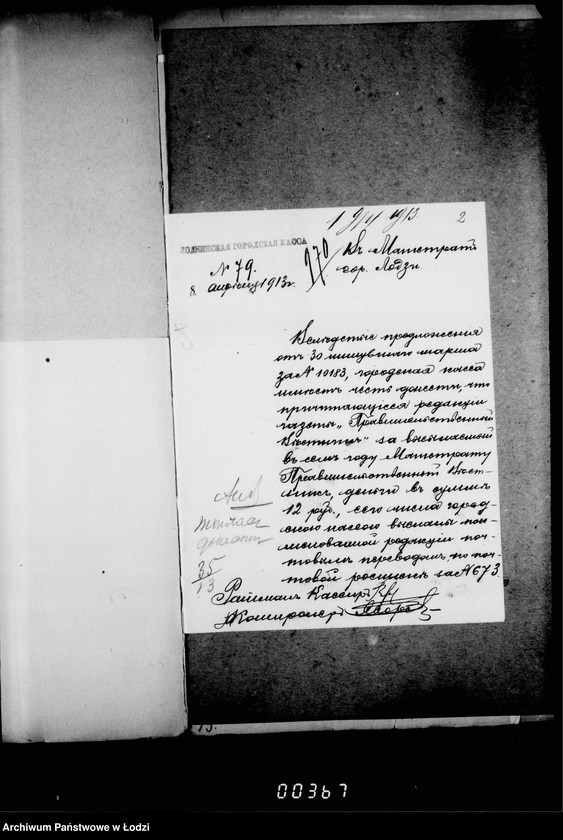 2
ЛОДЗИНСКАЯ ГОРОДСКАЯ КАССА
№ 79.
8 апрѣля 1913 г.
970
Въ Магистратъ
гор. Лодзи.
Вслѣдствіе предложенія
отъ 30 минувшаго марта
за № 10183, городская касса
имѣетъ честь донести, что
причитающіеся редакціи
газеты „Правительственный
Вѣстникъ" за высылаемый
въ семъ году Магистрату
Правительственный Вѣст-
никъ, деньги въ суммѣ
12 руб., сего числа город-
скою кассою высланы по-
именованной редакціи поч-
товымъ переводомъ, по поч-
товой роспискѣ за № 673.
35
13
Кассиръ
Контролеръ
13.
00367
Archiwum Państwowe w Łodzi